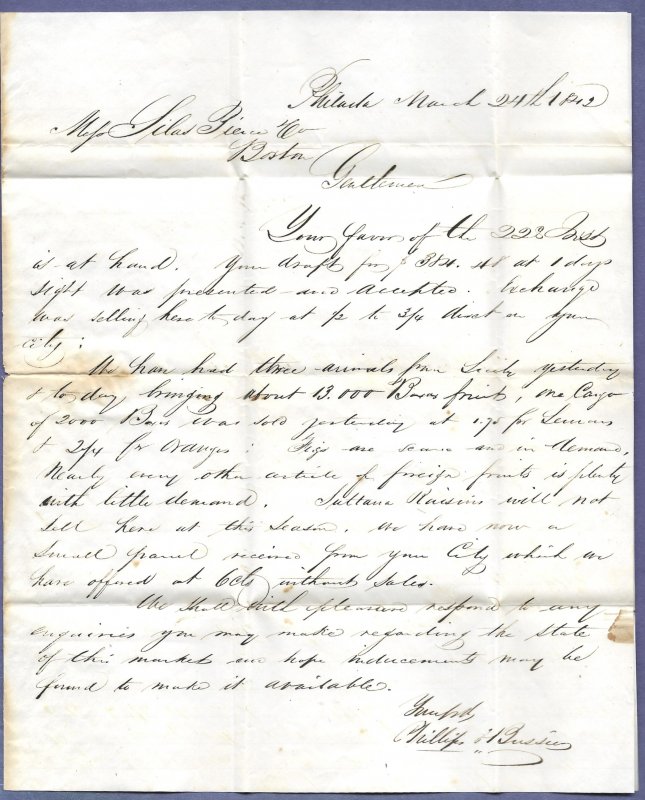 Philada March 24th 1842
Mess Silas Pierce & Co
Boston
Gentlemen
Your favor of the 22d Inst
is at hand. Your draft for $ 384.48 at 1 days
sight was presented and accepted. Exchange
was selling here to day at 1/2 to 3/4 disct on your
city.
We have had three arrivals from Sicily yesterday
& to day bringing about 13.000 Boxes fruit, one Cargo
of 2000 Boxes was sold yesterday at 1.75 for Lemons
& 2/4 for Oranges. Figs are scarce and in demand,
Nearly every other article of foreign fruits is plenty
with little demand. Sultana Raisins will not
sell here at this season. We have now a
small parcel received from your City which we
have offered at 6cts without sales.
We shall with pleasure respond to any
enquiries you may make regarding the state
of this market and hope inducements may be
found to make it available.
Phillips &